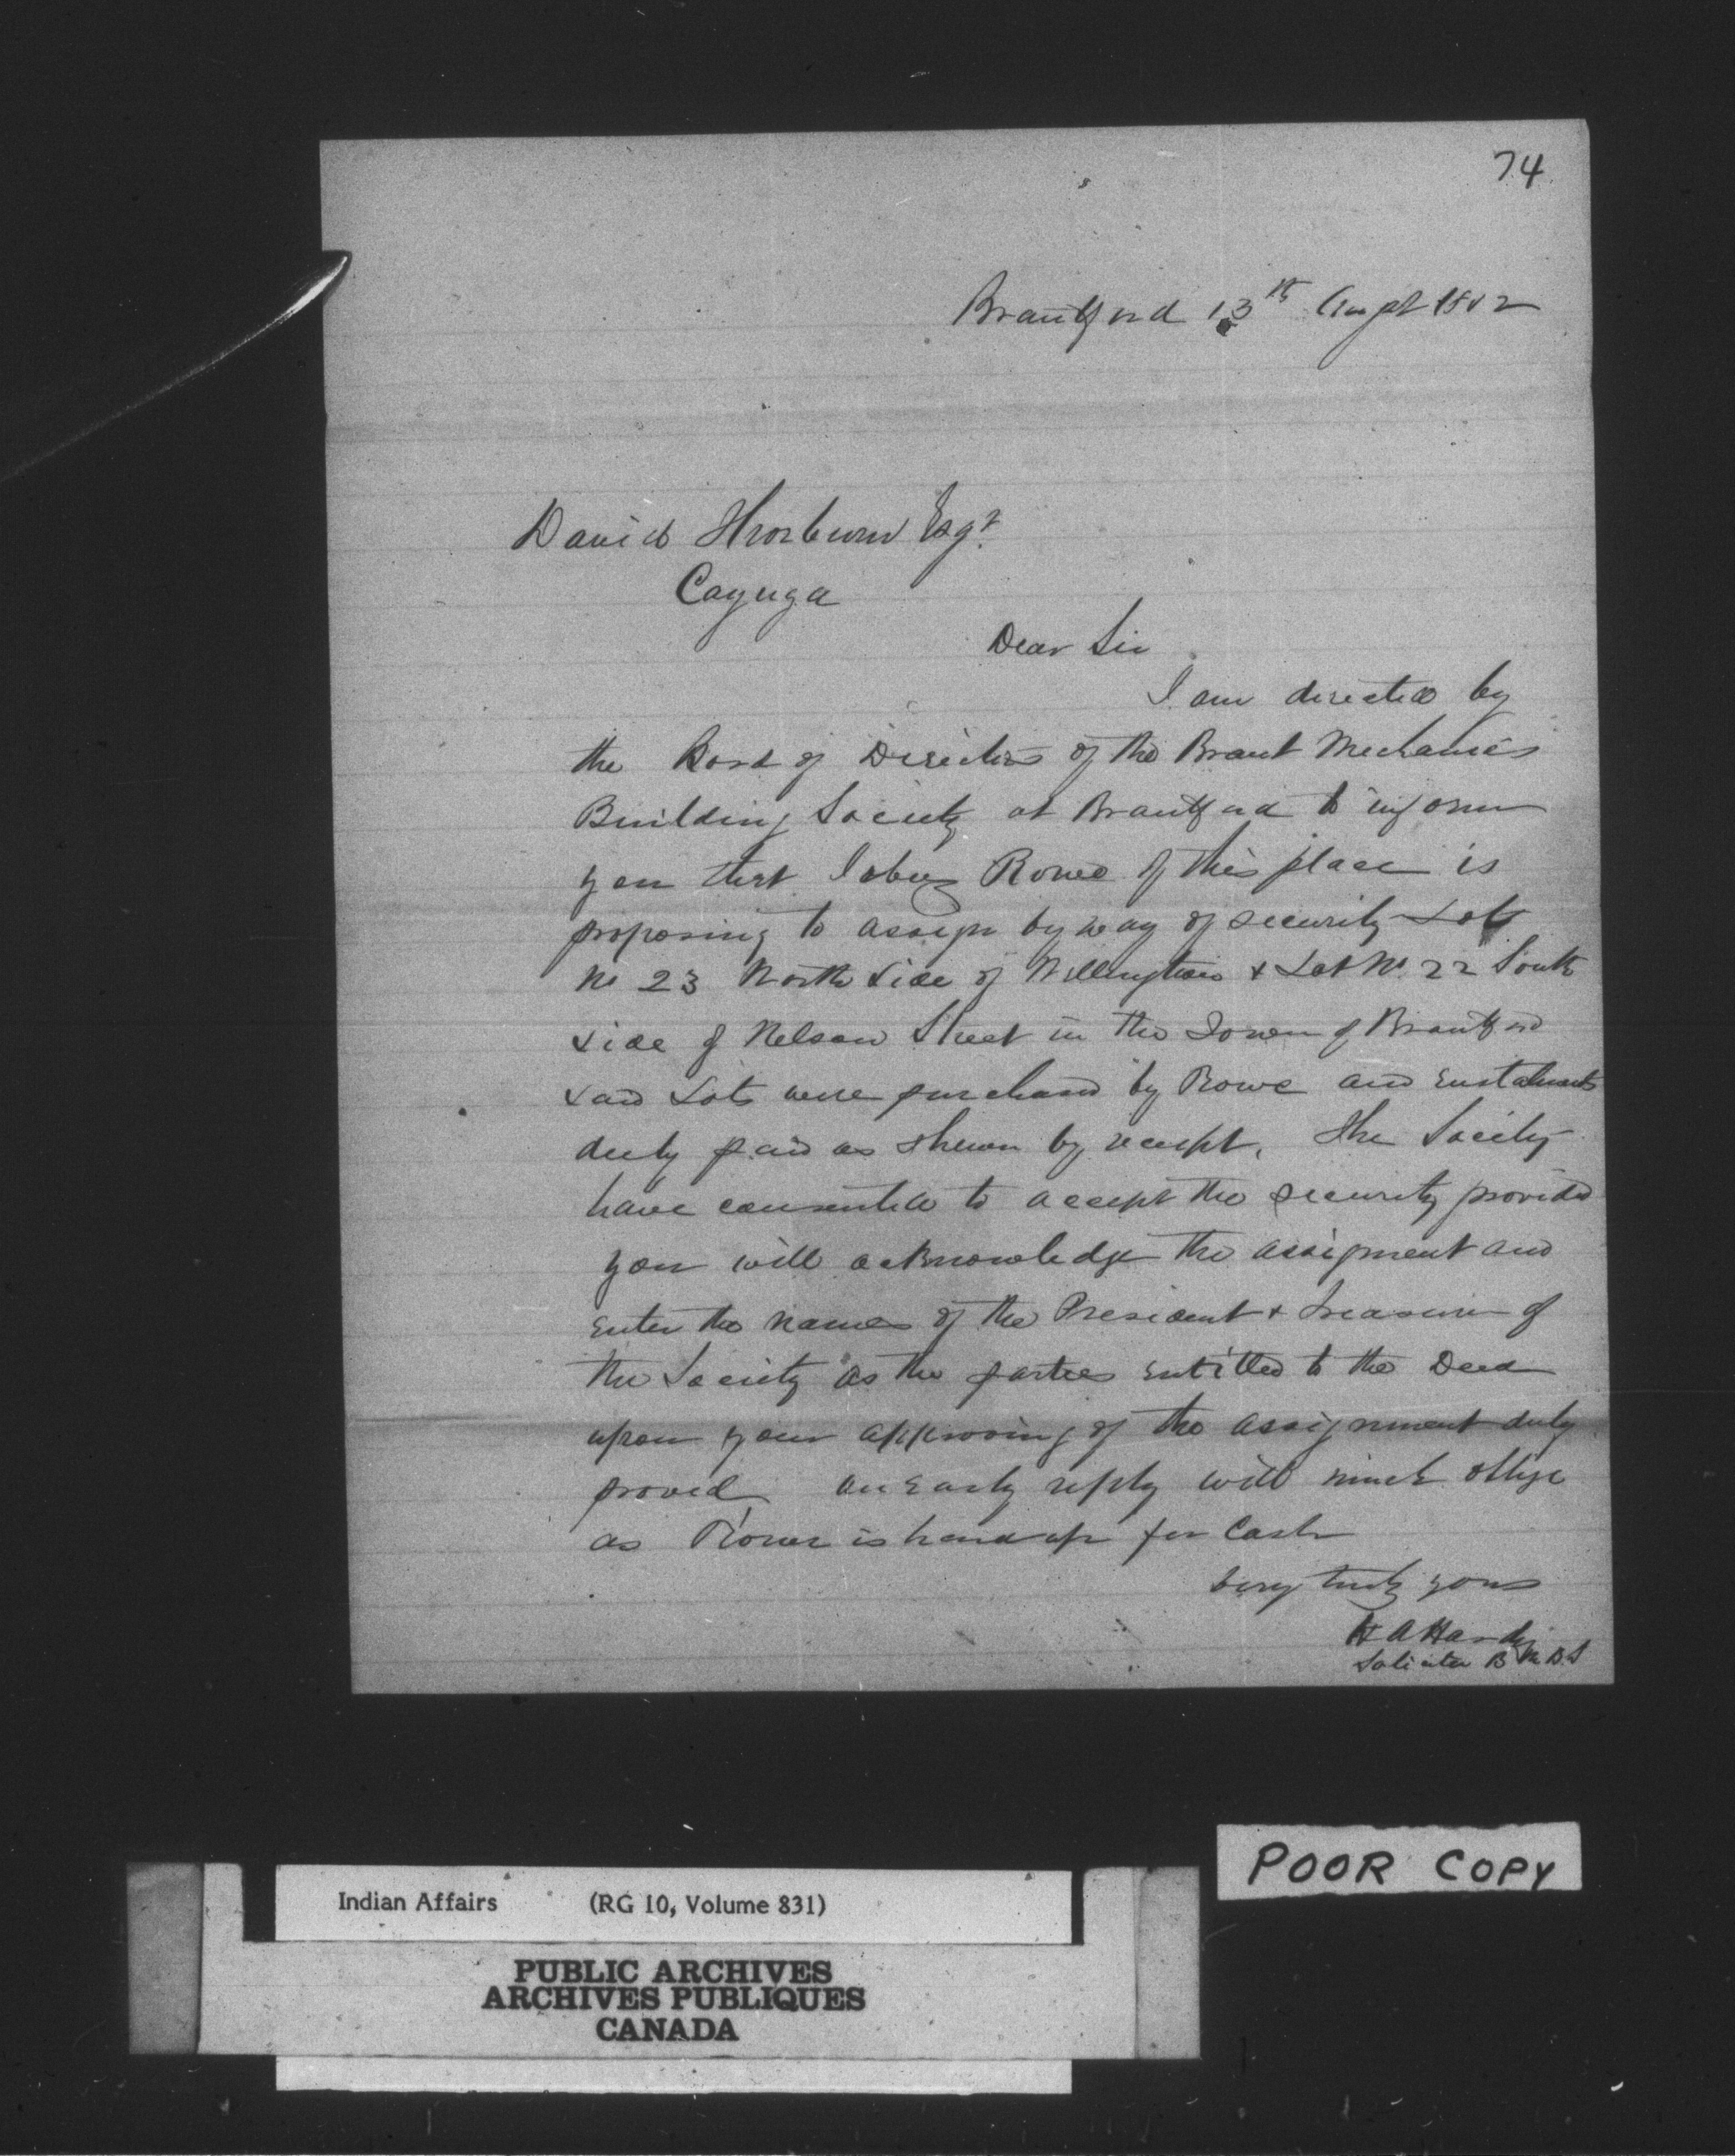 74
Brantford 13th Augst 1852
David Thorburn Esqr
Cayuga
Dear Sir
I am directed by
the Bord of Directors of the Brant Mechanics
Building Society at Brantford to inform
you that Jabez Rowe of this place is
proposing to assign by way of security Lots
No 23 North side of Wellington & Lot No 22 South
side of Nelson Street in the Town of Brantford
said Lots were purchased by Rowe and Instalments
duly paid as shewn by receipt. The Society
have consented to accept the security provided
you will acknowledge the assignment and
Enter the names of the President & Treasurer of
the Society as the parties Entitled to the Deed
upon your approving of the assignment duly
proved an Early reply will much oblige
as Rowe is hard up for Cash
very truly yours
H A Hardy
Solicitor B M B.S
POOR COPY
Indian Affairs (RG 10, Volume 831)
PUBLIC ARCHIVES
ARCHIVES PUBLIQUES
CANADA